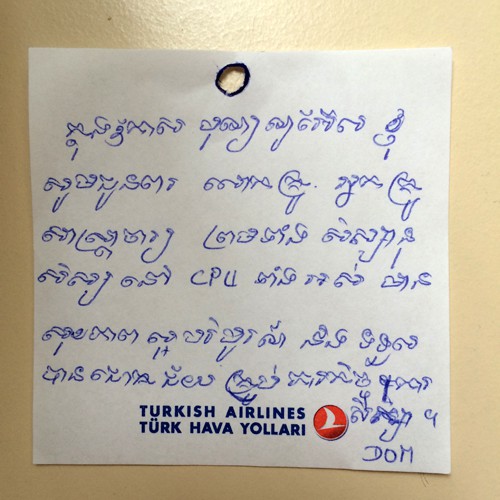 ក្នុងឱកាស បុណ្យណូអែល ខ្ញុំ
សូមជូនពរ លោកគ្រូ. អ្នកគ្រូ
សាស្ត្រាចារ្យ ព្រមទាំង សិស្សានុ
សិស្ស នៅ CPU ទាំង អស់ មាន
សុខភាព ល្អបរិបូរណ៍ និង ទទួល
បាន ជោគ ជ័យ គ្រប់ ភារកិច្ច
សិក្សា ។
TURKISH AIRLINES
TÜRK HAVA YOLLARI
DOM